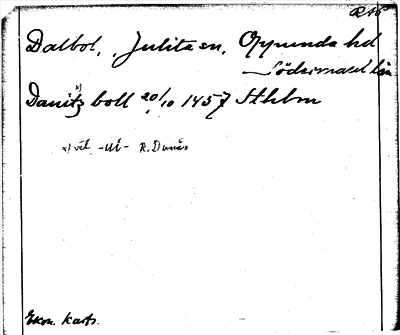 Dalbol, Julita sn, Oppunda hd
Södermanl län
Danitz boll 20/10 1457 Sthlm
x) väl -ul- R. Dunås
Ekon. kart.